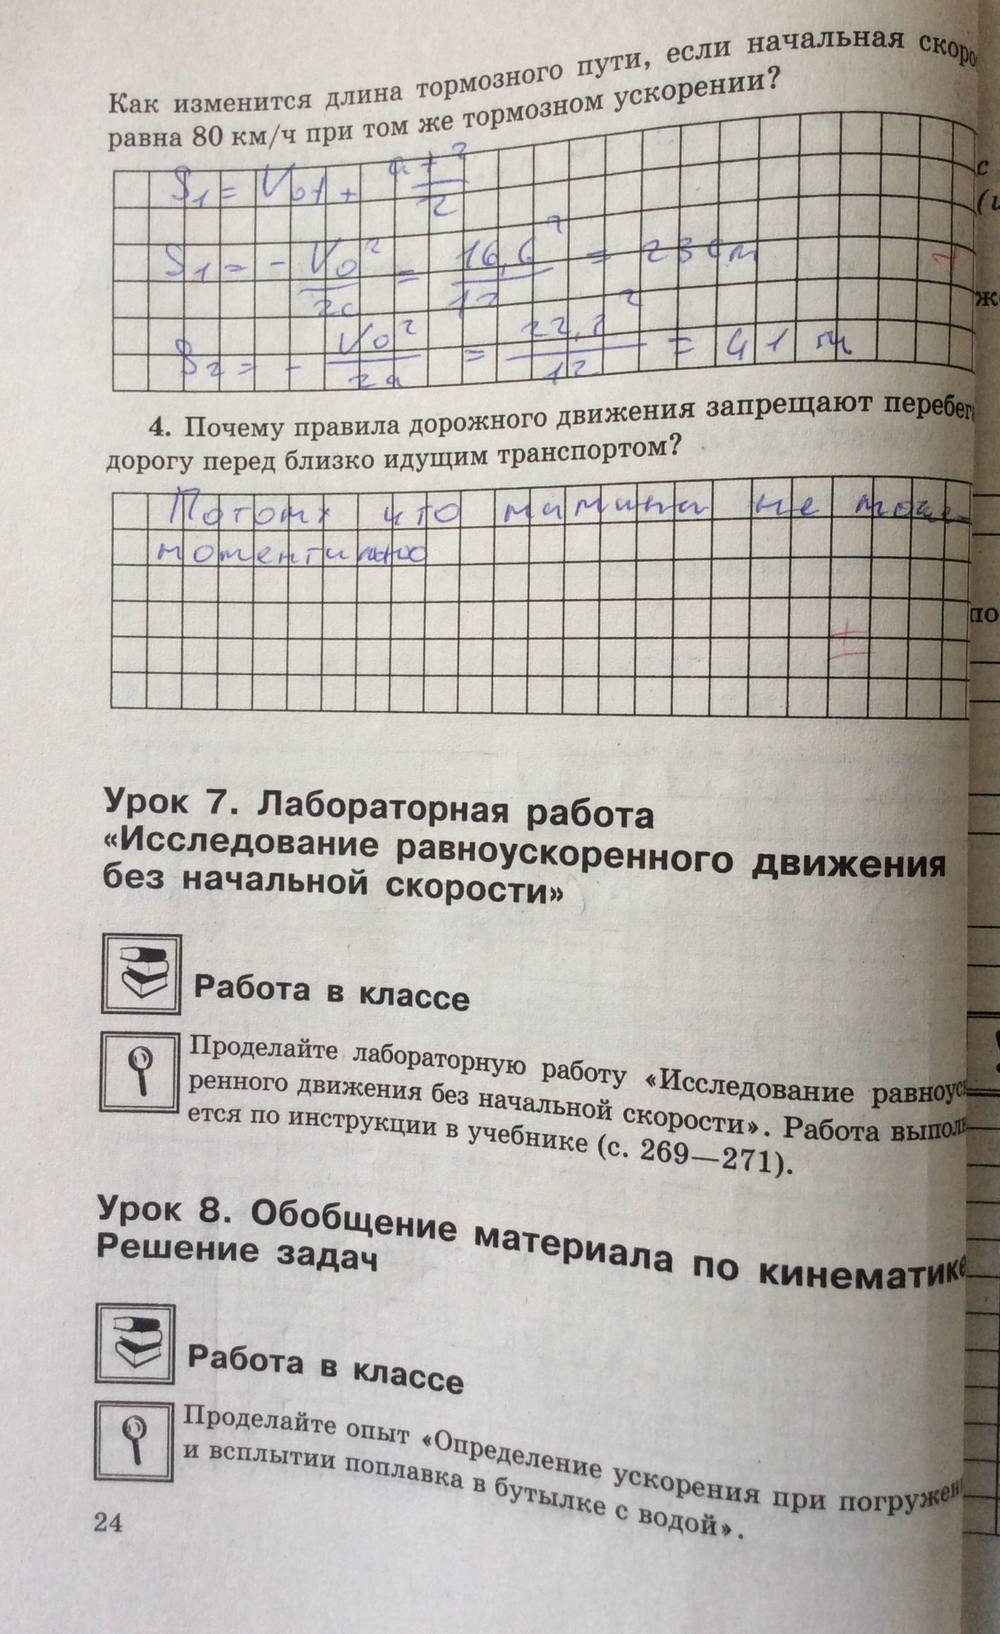 Как изменится длина тормозного пути, если начальная скоро
равна 80 км/ч при том же тормозном ускорении?
S₁ = V₀t + at²/2
S₁ = - V₀²/2a = 16,6²/12 = 23 м
S₂ = - V₀²/2a = 22,2²/12 = 41 м
4. Почему правила дорожного движения запрещают перебег
дорогу перед близко идущим транспортом?
Потому что машина не може
моментально
Урок 7. Лабораторная работа
«Исследование равноускоренного движения
без начальной скорости»
Работа в классе
Проделайте лабораторную работу «Исследование равноус
ренного движения без начальной скорости». Работа выпол
ется по инструкции в учебнике (с. 269—271).
Урок 8. Обобщение материала по кинематике
Решение задач
Работа в классе
Проделайте опыт «Определение ускорения при погружен
и всплытии поплавка в бутылке с водой».
24